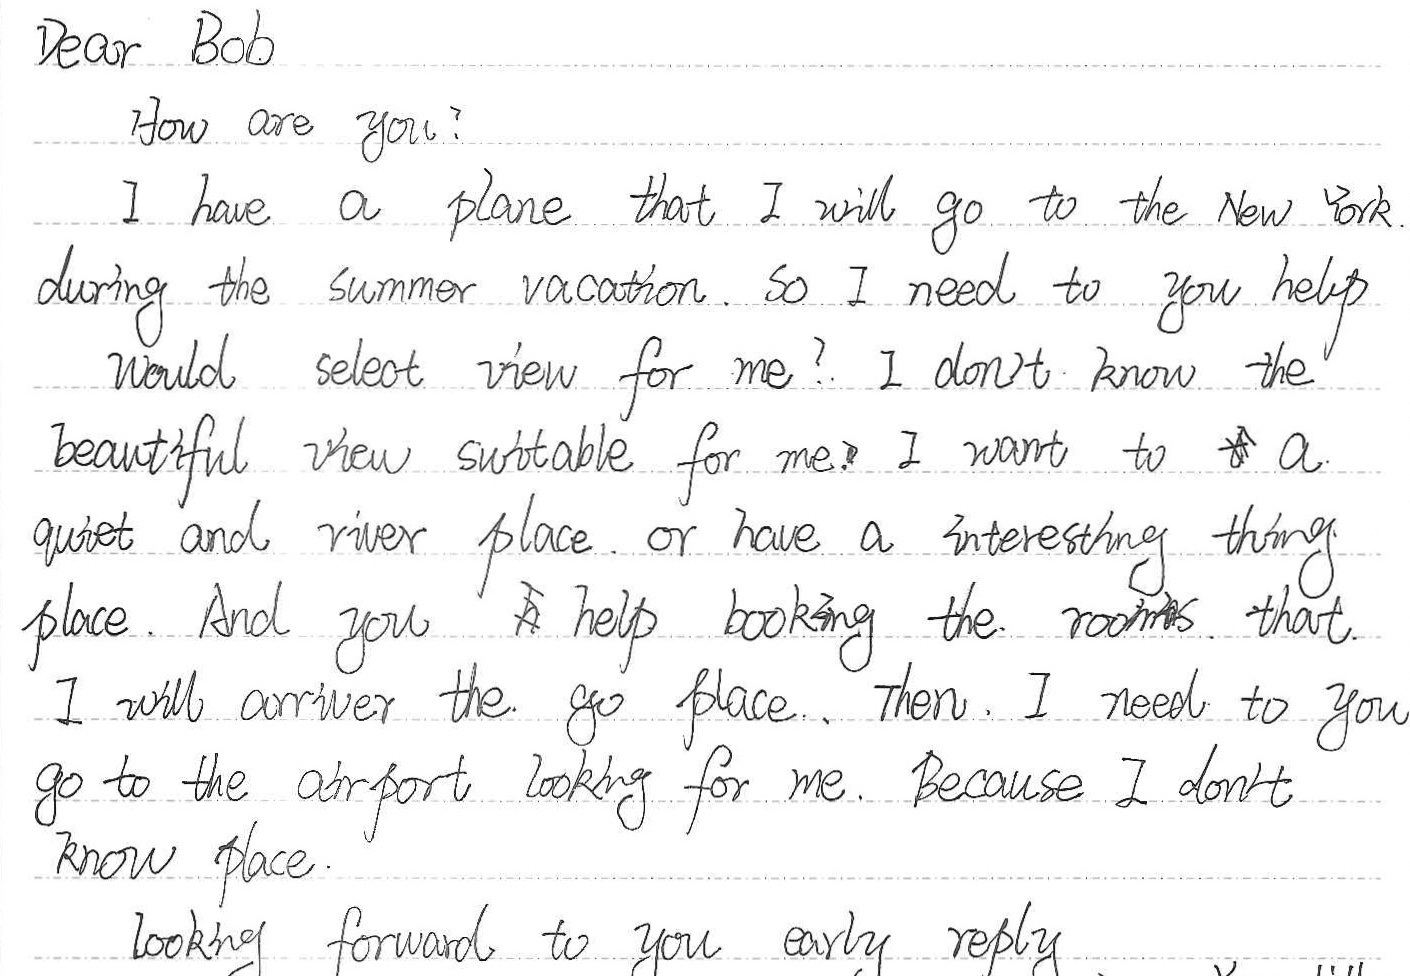 Dear Bob
How are you?
I have a plane that I will go to the New York.
during the summer vacation. So I need to you help
Would select view for me? I don't know the
beautiful view suitable for me. I want to a
quiet and river place. or have a interesting thing
place. And you help booking the rooms that
I will arriver the go place. Then. I need to you
go to the airport looking for me. Because I don't
know place.
looking forward to you early reply